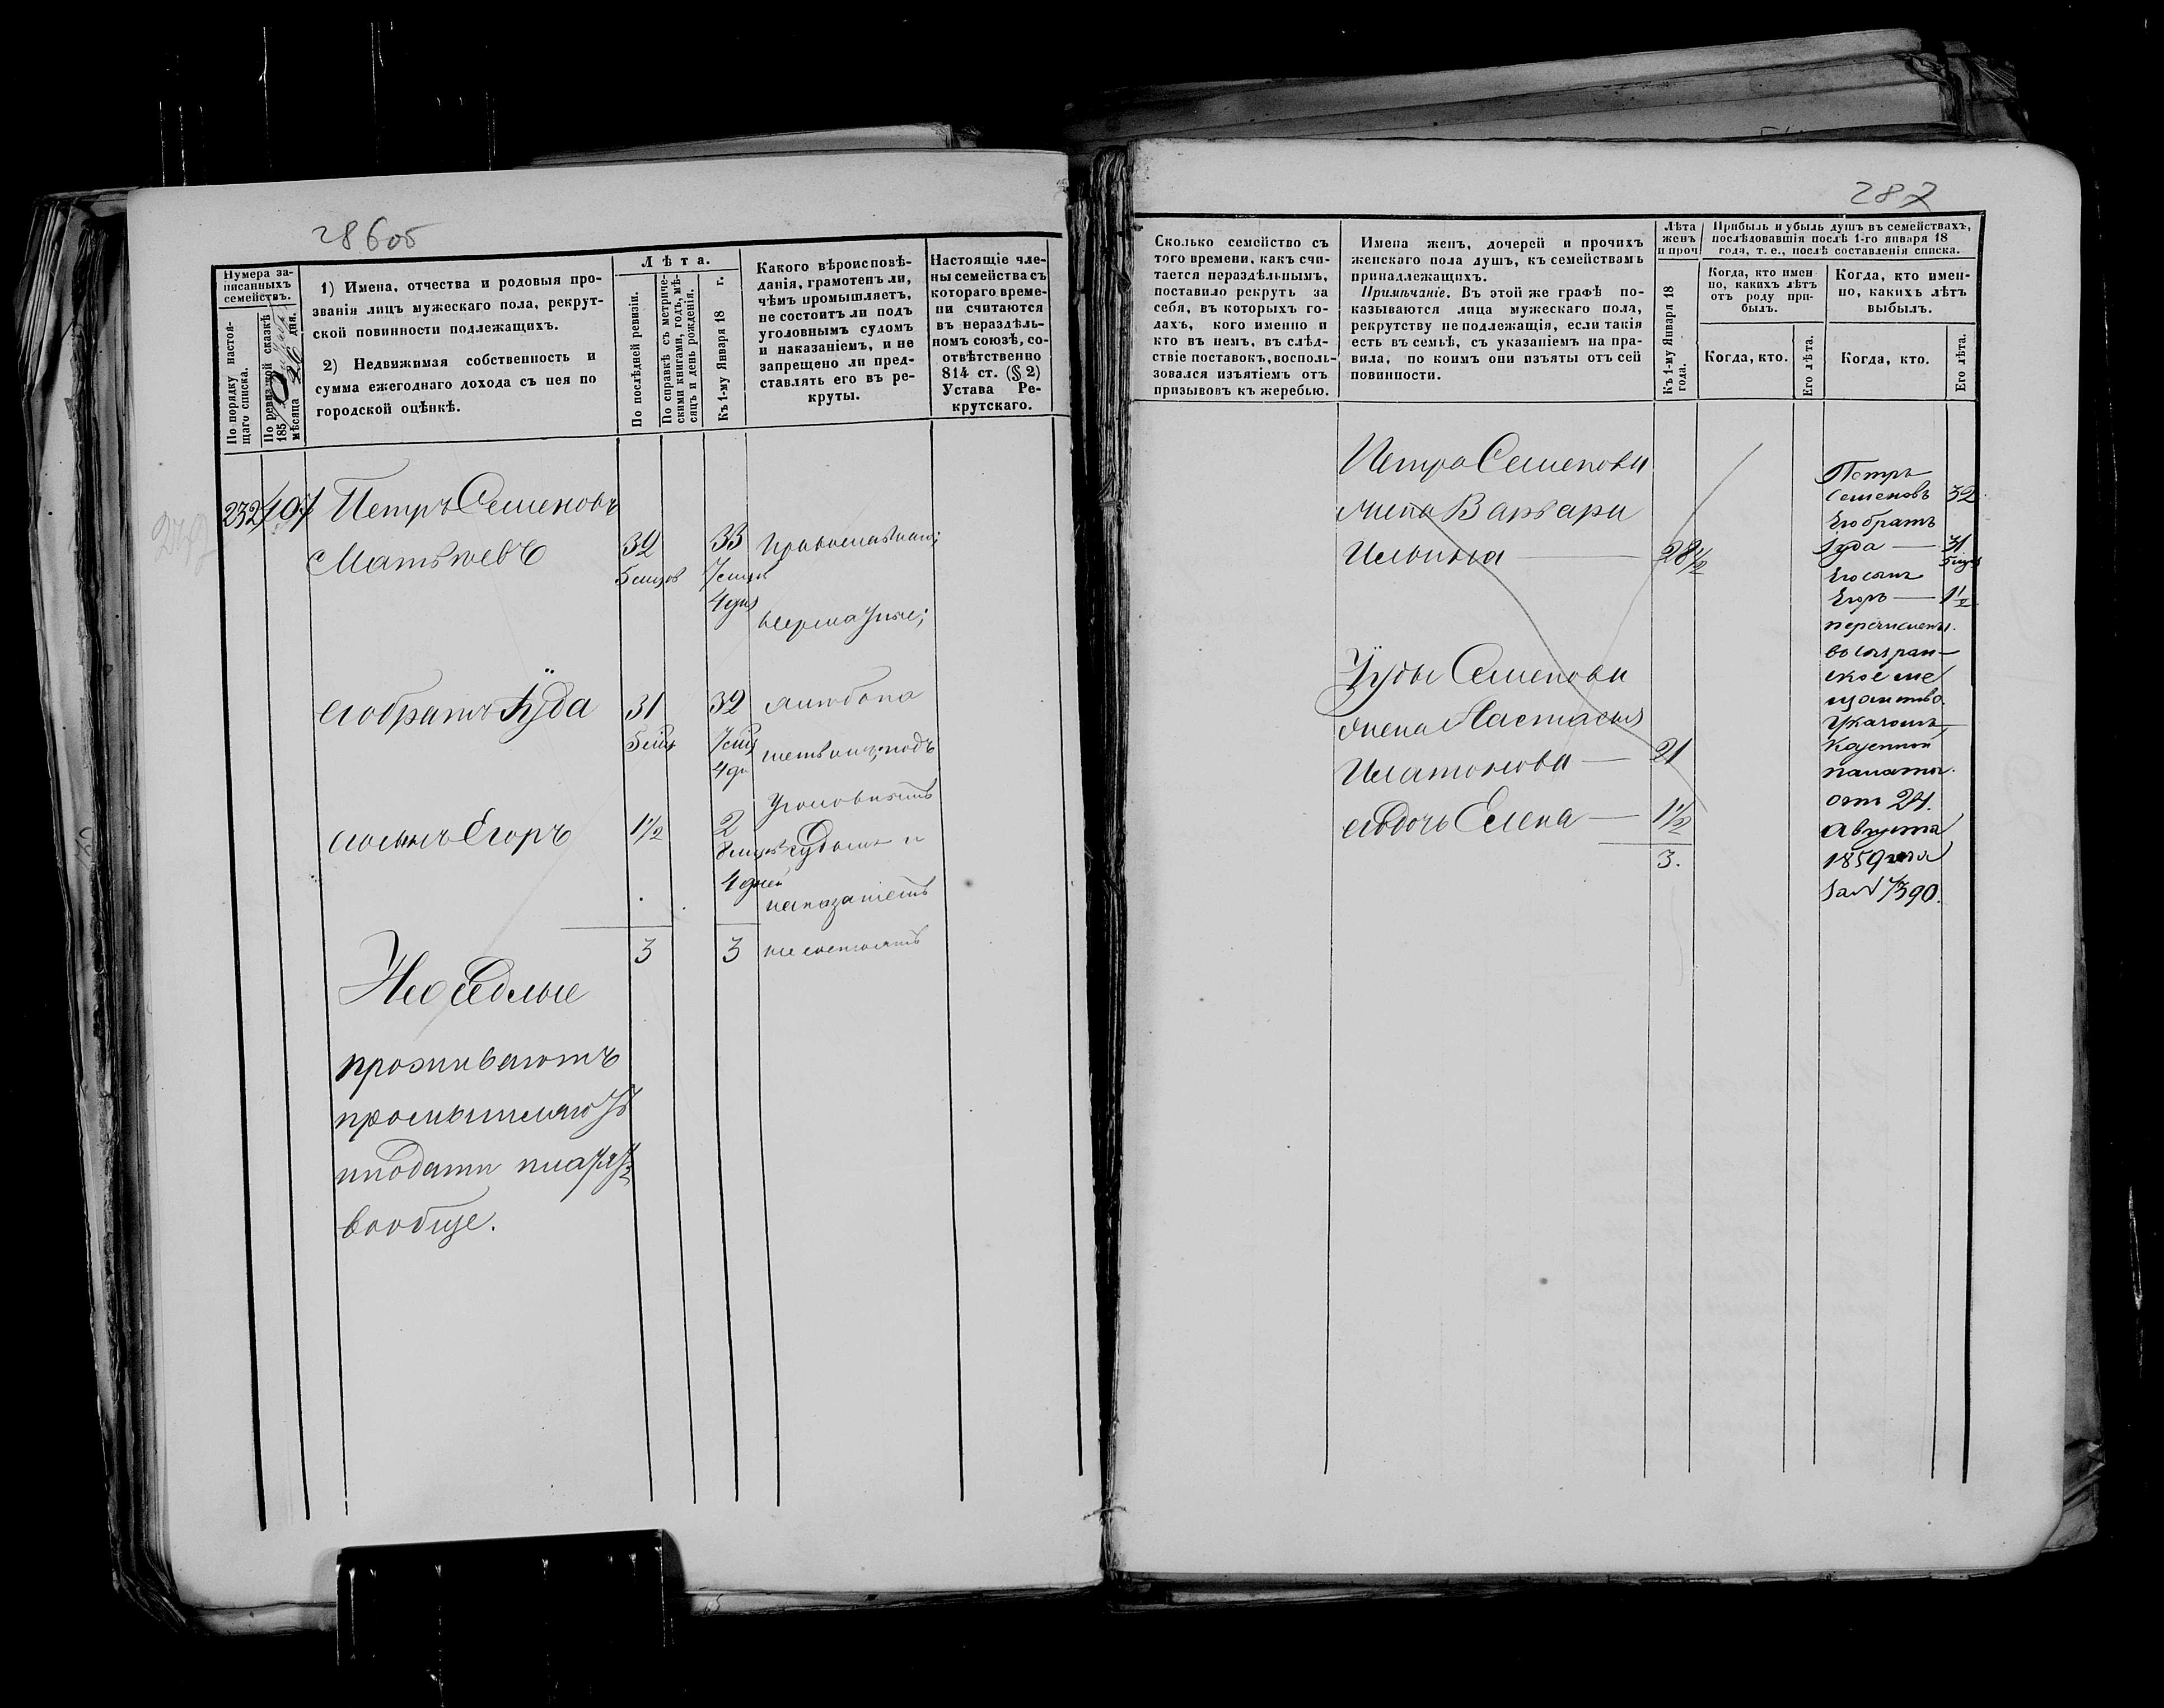 286об
Нумера за-
писанныхъ
семействъ.
По порядку настоя-
щаго списка.
По ревизкой сказкѣ
185
мѣсяца 26 дня.
1) Имена, отчества и родовыя про-
званія лицъ мужескаго пола, рекрут-
ской повинности подлежащихъ.
2) Недвижимая собственность и
сумма ежегоднаго дохода съ нея по
городской оцѣнкѣ.
Лѣта.
По послѣдней ревизіи.
По справкѣ съ метриче-
скими книгами, годъ, мѣ-
сяцъ и день рожденія.
Къ 1-му Января 18 г.
Какого вѣроисповѣ-
данія, грамотенъ ли,
чѣмъ промышляетъ,
не состоитъ ли подъ
уголовнымъ судомъ
и наказаніемъ, и не
запрещено ли пред-
ставлять его въ ре-
круты.
Настоящіе чле-
ны семейства съ
котораго време-
ни считаются
въ нераздѣль-
номъ союзѣ, со-
отвѣтственно
814 ст. (§ 2)
Устава Ре-
крутскаго.
232 407 Петръ Семеновъ
Матвѣевъ 32 33
5 мцов 7 мцов
4 дня
его братъ Іуда 31 32
5 мцв 7 мцв
4 дн
его сынъ Егоръ 1½ 2
4 дней
3 3
Православнаго;
неграмотные;
подъ
Уголовнымъ
судомъ и
наказаніемъ
не состоятъ
Неоседлые
проживаютъ
промышляютъ
иподати платятъ
вообще.
287
Сколько семейство съ
того времени, какъ счи-
тается нераздѣльнымъ,
поставило рекрутъ за
себя, въ которыхъ го-
дахъ, кого именно и
кто въ немъ, въ слѣд-
ствіе поставокъ, восполь-
зовался изъятіемъ отъ
призывовъ къ жеребью.
Имена женъ, дочерей и прочихъ
женскаго пола душъ, къ семействамъ
принадлежащихъ.
Примѣчаніе. Въ этой же графѣ по-
казываются лица мужескаго пола,
рекрутству не подлежащія, если такія
есть въ семьѣ, съ указаніемъ на пра-
вила, по коимъ они изъяты отъ сей
повинности.
Лѣта
женъ
и проч
Къ 1-му Января 18
года.
Прибыль и убыль душъ въ семействахъ,
послѣдовавшія послѣ 1-го января 18
года, т. е., послѣ составленія списка.
Когда, кто имен
но, какихъ лѣтъ
отъ роду при-
былъ.
Когда, кто имен-
но, какихъ лѣтъ
выбылъ.
Когда, кто.
Его лѣта.
Когда, кто.
Его лѣта.
Петра Семенова
жена Варвара
Ильина — 28½
Іуды Семенова
жена Настасья
Платонова — 21
ихъ дочь Елена — 1½
3.
Петръ
Семеновъ 32
Его братъ
Іуда — 31
5 мцв
Его сынъ
Егоръ — 1½
перечислены
во сызран-
ское ме
щанство
Указомъ
Казенной
палаты
отъ 24.
Августа
1859 года
за № 7390.